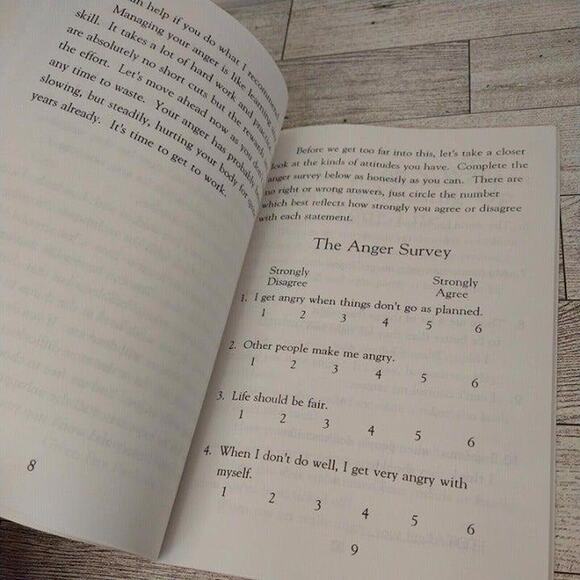 help if you do what I recommend.
Managing your anger is like learning
skill. It takes a lot of hard work and
are absolutely no short cuts but the
the effort. Let's move ahead now as you
any time to waste. Your anger has probably
slowing, but steadily, hurting your body for
years already. It's time to get to work.
8
Before we get too far into this, let's take a closer
look at the kinds of attitudes you have. Complete the
anger survey below as honestly as you can. There are
no right or wrong answers, just circle the number
which best reflects how strongly you agree or disagree
with each statement.
The Anger Survey
Strongly Strongly
Disagree Agree
1. I get angry when things don't go as planned.
1 2 3 4 5 6
2. Other people make me angry.
1 2 3 4 5 6
3. Life should be fair.
1 2 3 4 5 6
4. When I don't do well, I get very angry with
myself.
1 2 3 4 5 6
9